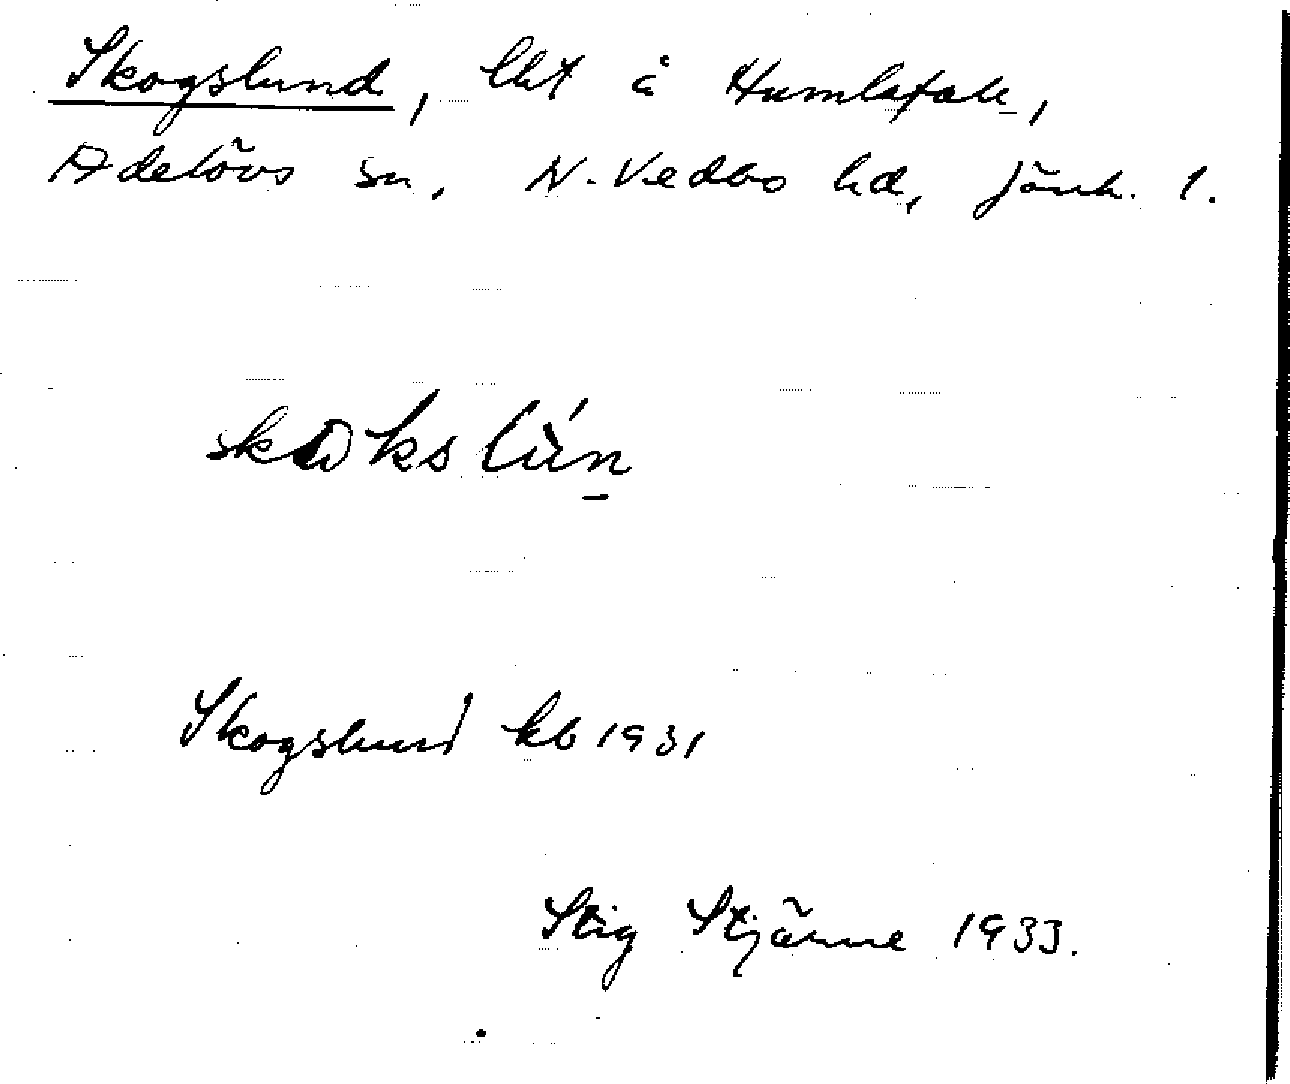 Skogslund, lht å Humlafall,
Adelövs sn, N. Vedbo hd, Jönk. l.
skoks lún
Skogslund kb 1931
Stig Stjärne 1933.